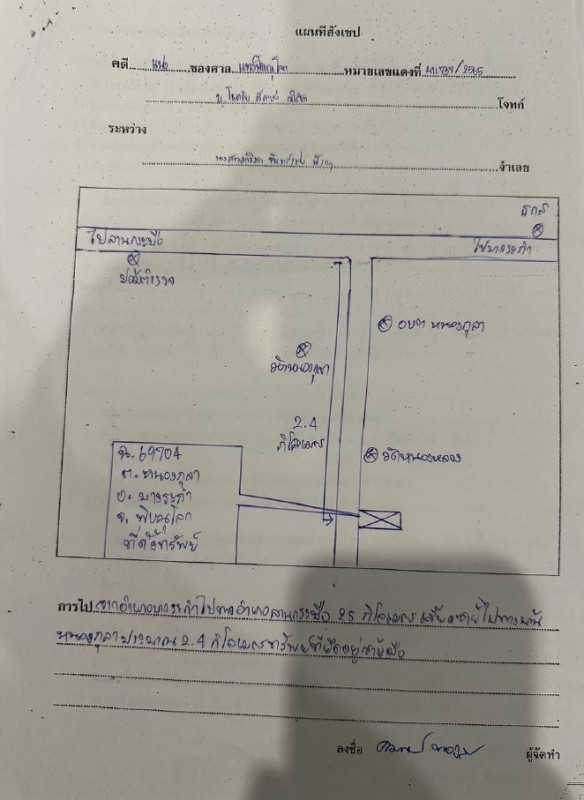 แผนที่สังเขป
คดี แพ่ง ของศาล หมายเลขแดงที่ /2565
โจทก์
ระหว่าง
จำเลย
ธกส
ไปลานกระบือ
ไปบางระกำ
ป้อมตำรวจ
อบต หนองกุลา
วัดหนองกุลา
2.4
กิโลเมตร
วัดหนองหลวง
ฉ. 69704
ต. หนองกุลา
อ. บางระกำ
จ. พิษณุโลก
ที่ตั้งทรัพย์
การไป จากอำเภอบางระกำไปทางอำเภอลานกระบือ 25 กิโลเมตร เลี้ยวซ้ายไปทางบ้าน
หนองกุลาประมาณ 2.4 กิโลเมตรทรัพย์ที่ยึดอยู่ซ้ายมือ
ลงชื่อ ผู้จัดทำ